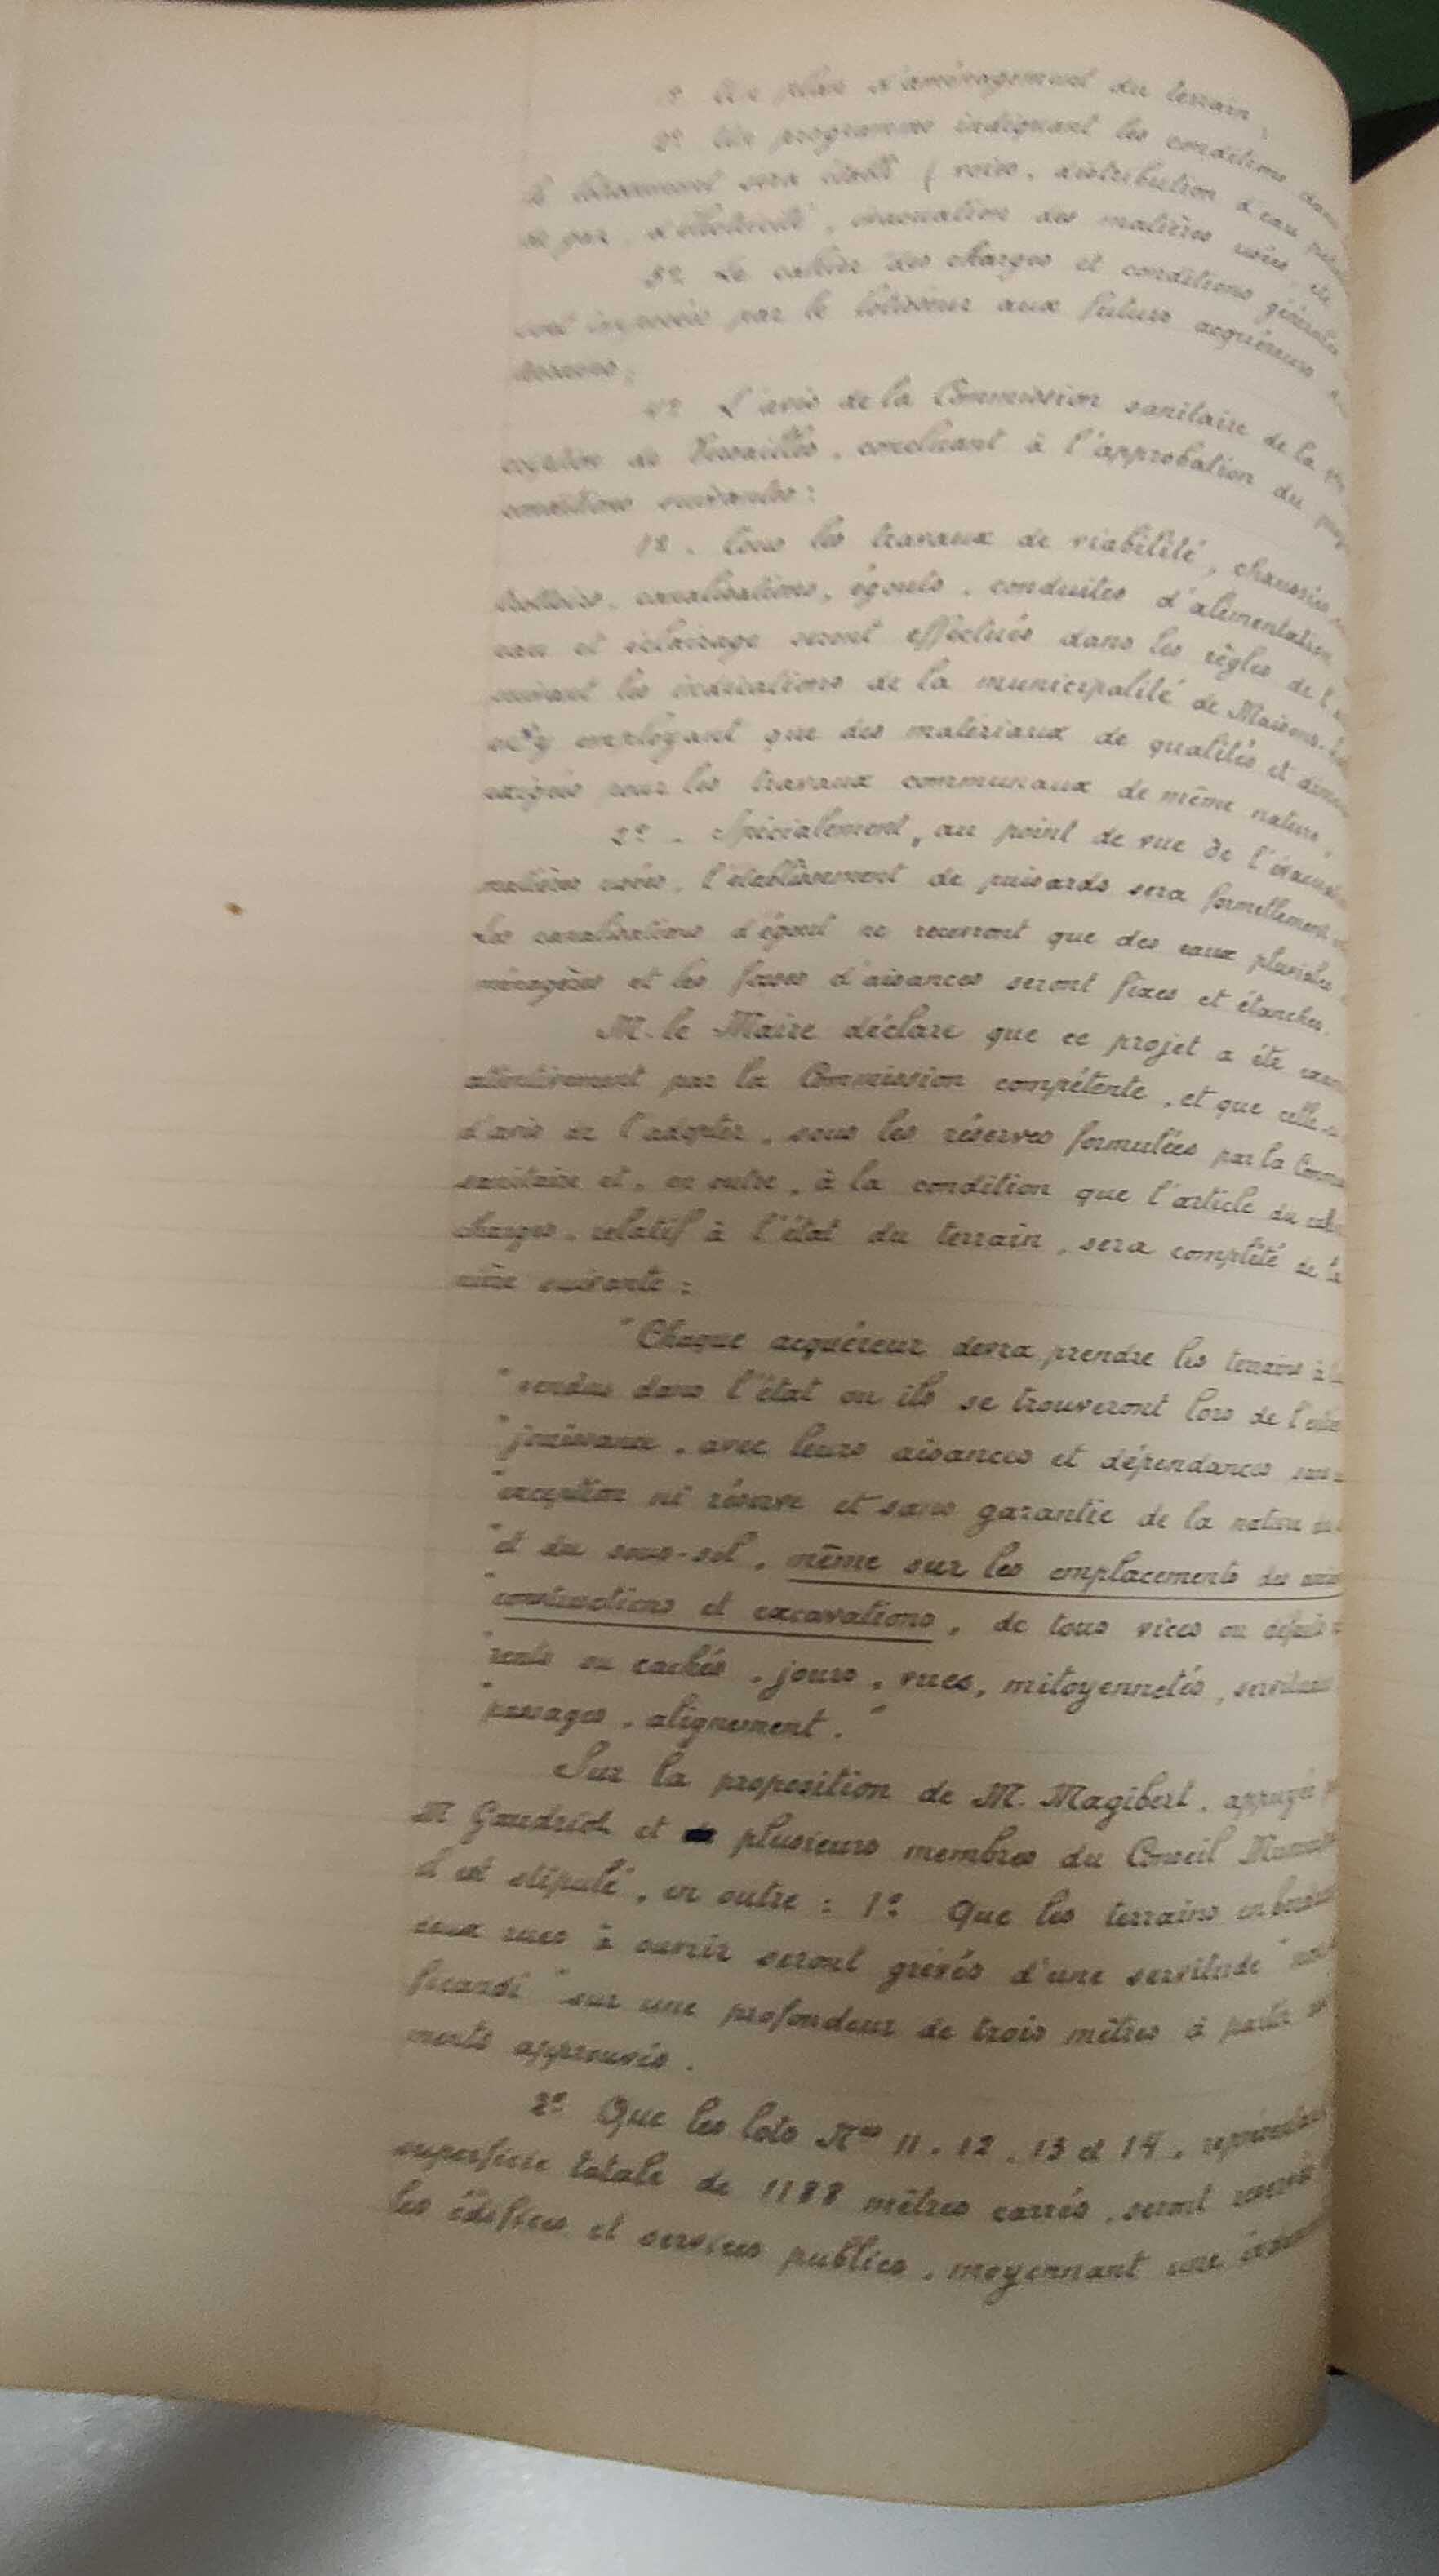 1º Un plan d'aménagement du terrain ;
2º Un programme indiquant les conditions dans
le lotissement sera établi ( voirie, distribution d'eau
de gaz, d'électricité, évacuation des matières usées, etc
3º Le cahier des charges et conditions générales
sont imposées par le lotisseur aux futurs acquéreurs
terrains ;
4º L'avis de la Commission sanitaire de la
de Versailles, concluant à l'approbation du
conditions suivantes :
1º. Tous les travaux de viabilité, chaussées
trottoirs, canalisations, égouts, conduites d'alimentation
eau et éclairage seront effectués dans les règles de l'
suivant les indications de la municipalité de Maisons-
n'y employant que des matériaux de qualités et
exigées pour les travaux communaux de même nature,
2º. Spécialement, au point de vue de l'
matières usées, l'établissement de puisards sera formellement
Les canalisations d'égout ne recevront que des eaux pluviales
ménagères et les fosses d'aisances seront fixes et étanches.
M. le Maire déclare que ce projet a été
attentivement par la Commission compétente, et que celle-ci
d'avis de l'adopter, sous les réserves formulées par la
sanitaire et, en outre, à la condition que l'article du
charges, relatif à l'état du terrain, sera complété de la
nière suivante :
"Chaque acquéreur devra prendre les terrains à lui
"vendus dans l'état ou ils se trouveront lors de l'
"jouissance, avec leurs aisances et dépendances sans
"exception ni réserve et sans garantie de la nature du
"et du sous-sol, même sur les emplacements des
"constructions et excavations, de tous vices ou défauts
"rents ou cachés, jours, vues, mitoyennetés, servitudes
"passages, alignement."
Sur la proposition de M. Magibert, appuyée
M Gaudriot et plusieurs membres du Conseil
il est stipulé, en outre : 1º Que les terrains en
deux rues à ouvrir seront grévés d'une servitude "
ficandi" sur une profondeur de trois mètres à partir
ments approuvés.
2º Que les lots Nos 11, 12, 13 et 14,
superficie totale de 1188 mètres carrés, seront
les édifices et services publics, moyennant une